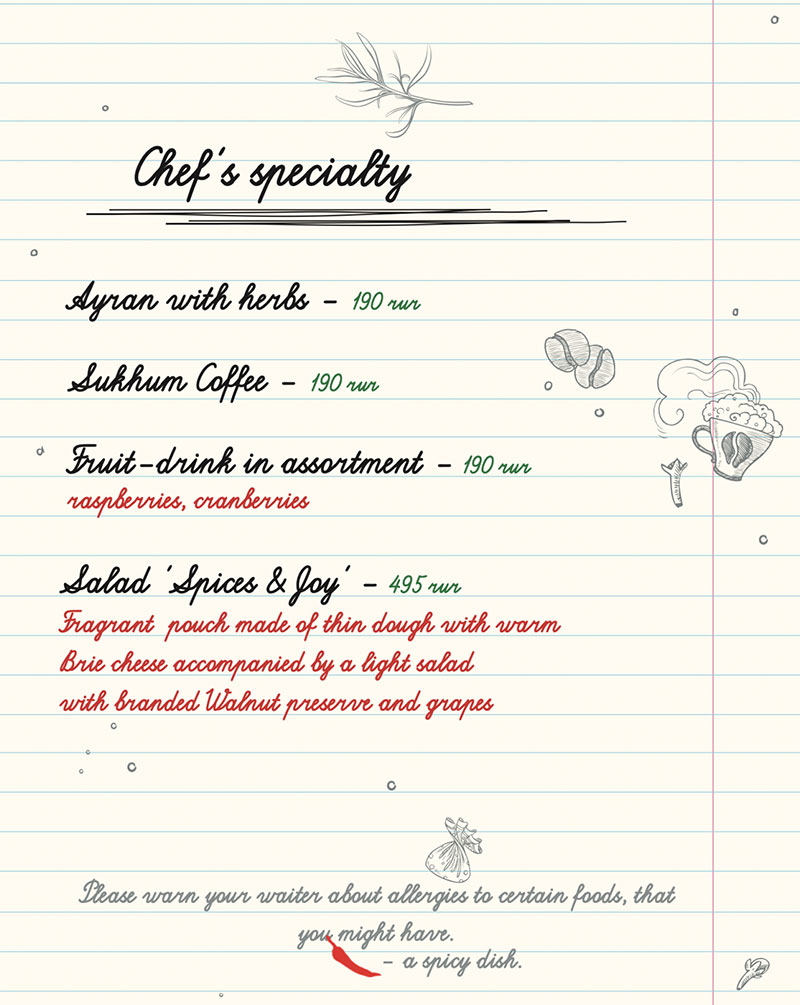 Chef's specialty
Ayran with herbs - 190 rur
Sukhum Coffee - 190 rur
Fruit-drink in assortment - 190 rur
raspberries, cranberries
Salad 'Spices & Joy' - 495 rur
Fragrant pouch made of thin dough with warm
Brie cheese accompanied by a light salad
with branded Walnut preserve and grapes
Please warn your waiter about allergies to certain foods, that
you might have.
- a spicy dish.